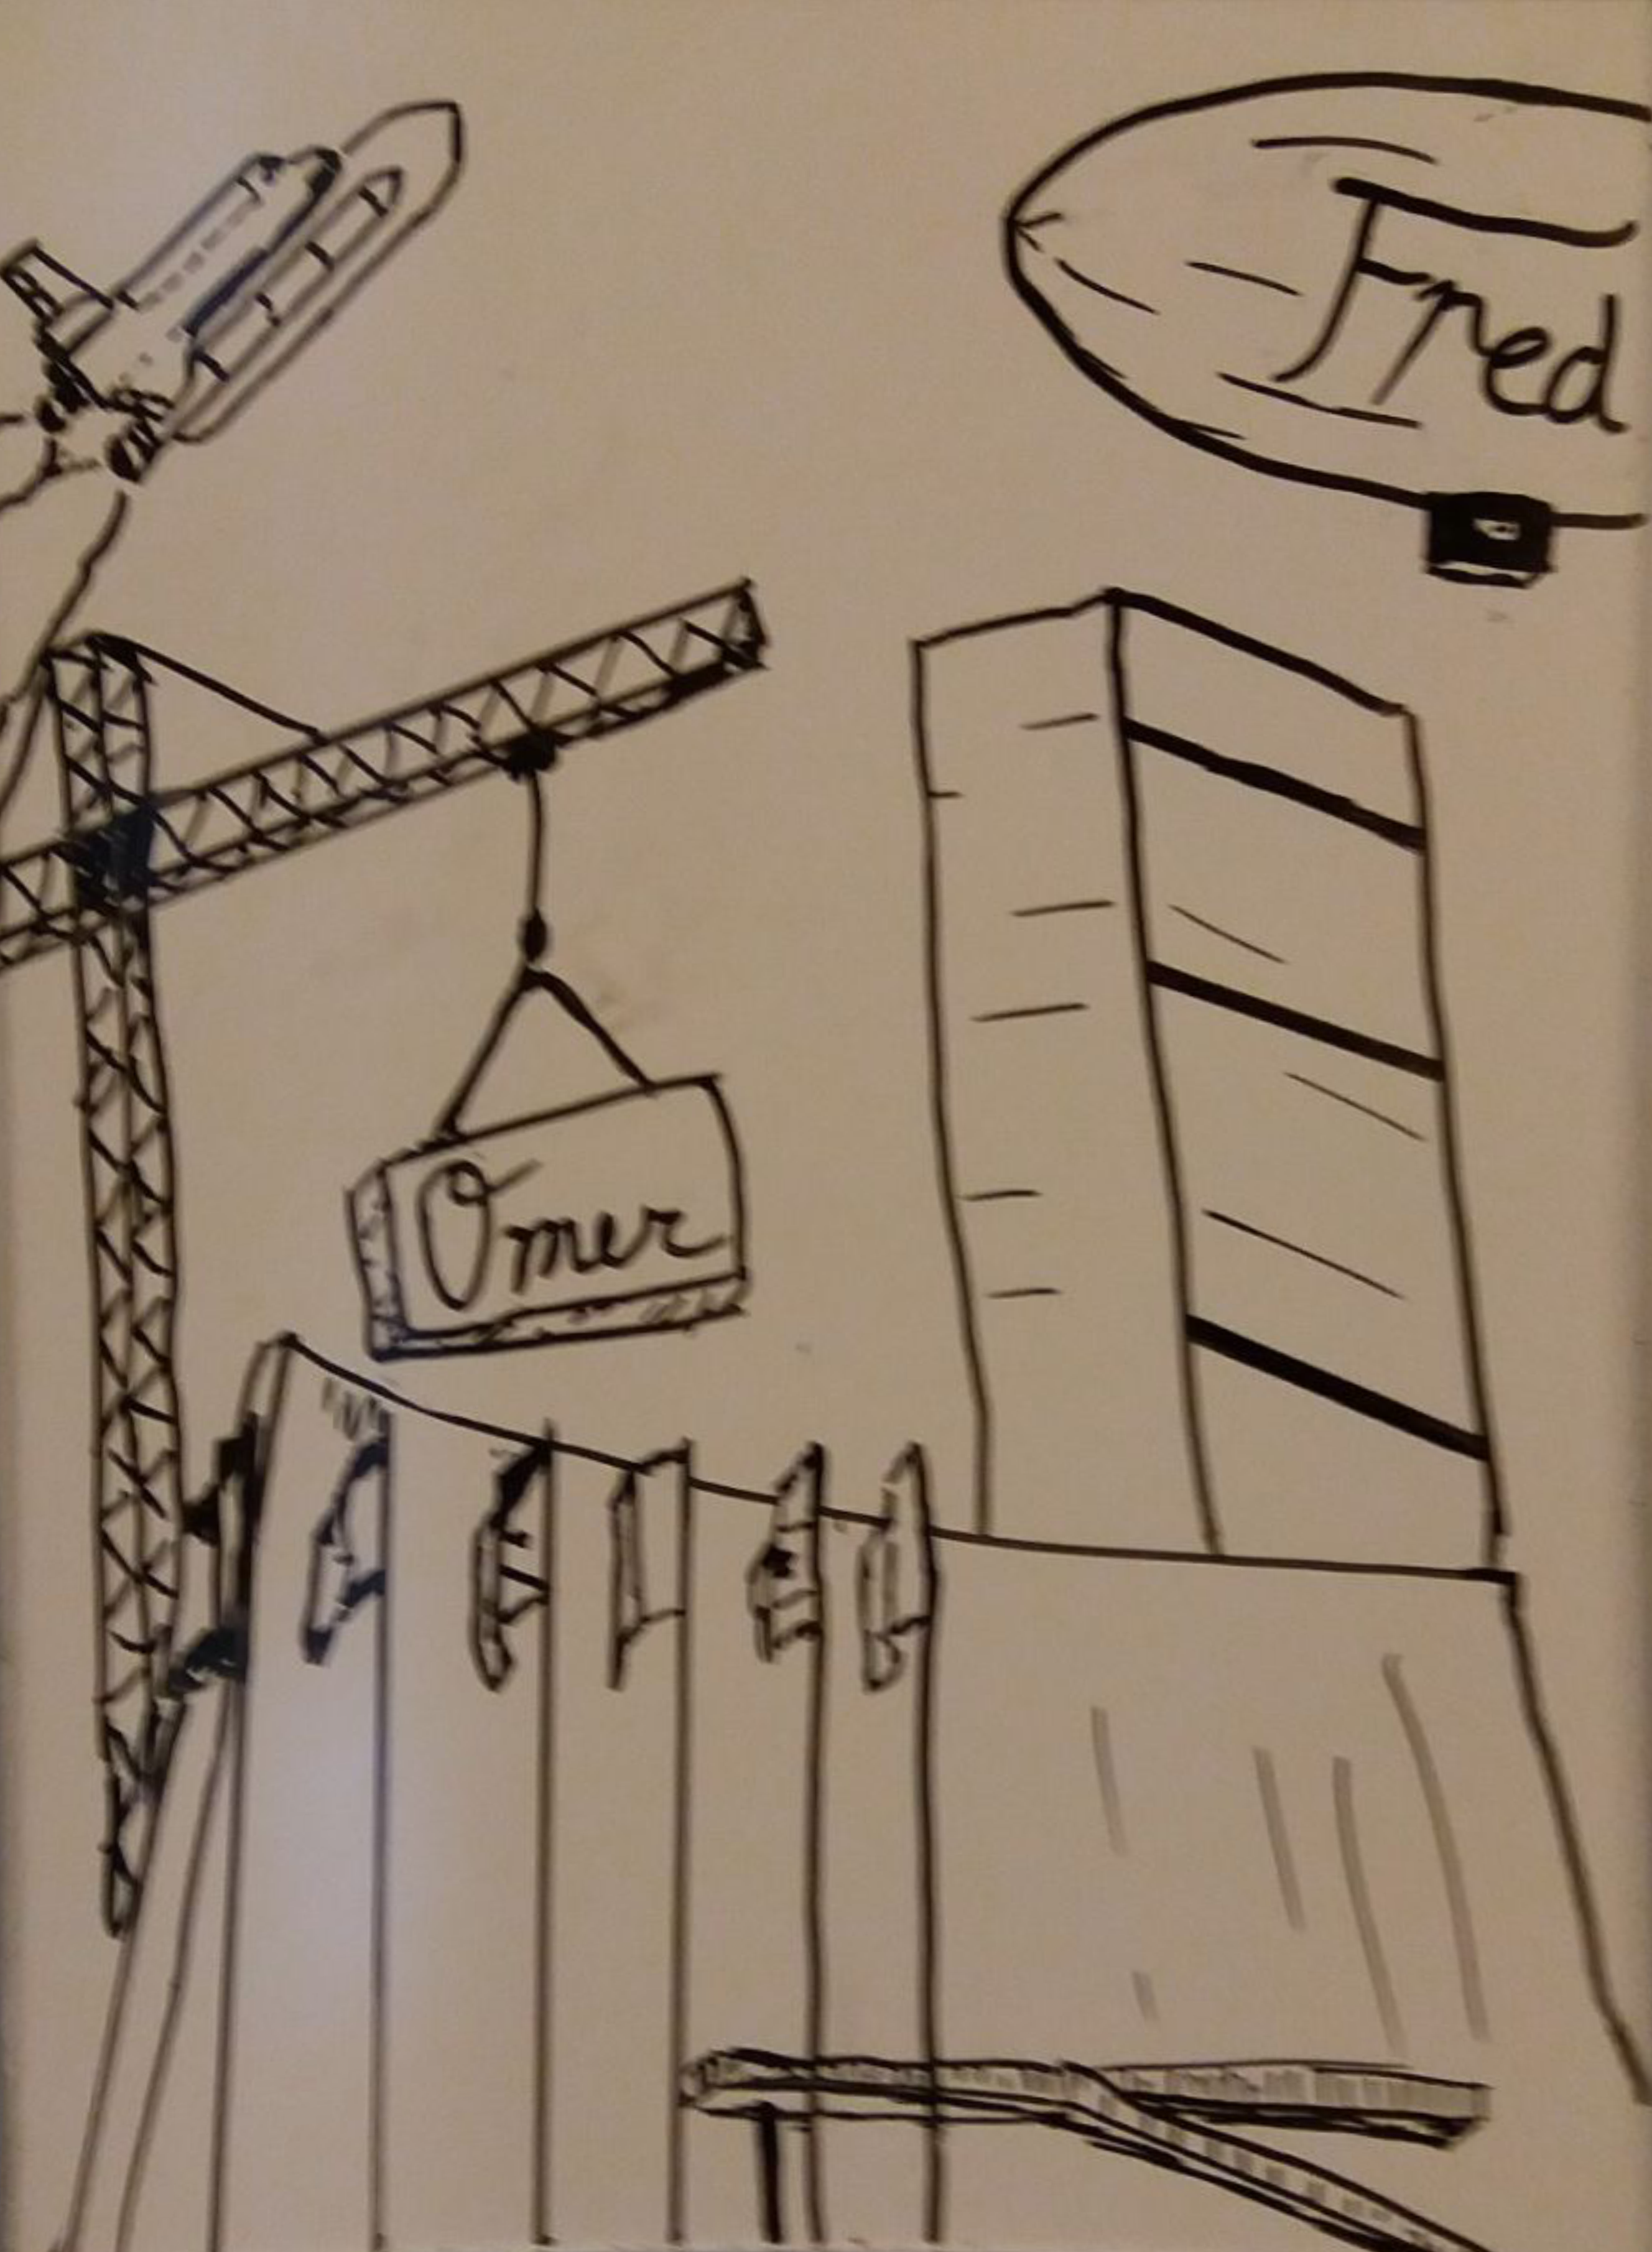 Fred
Omer